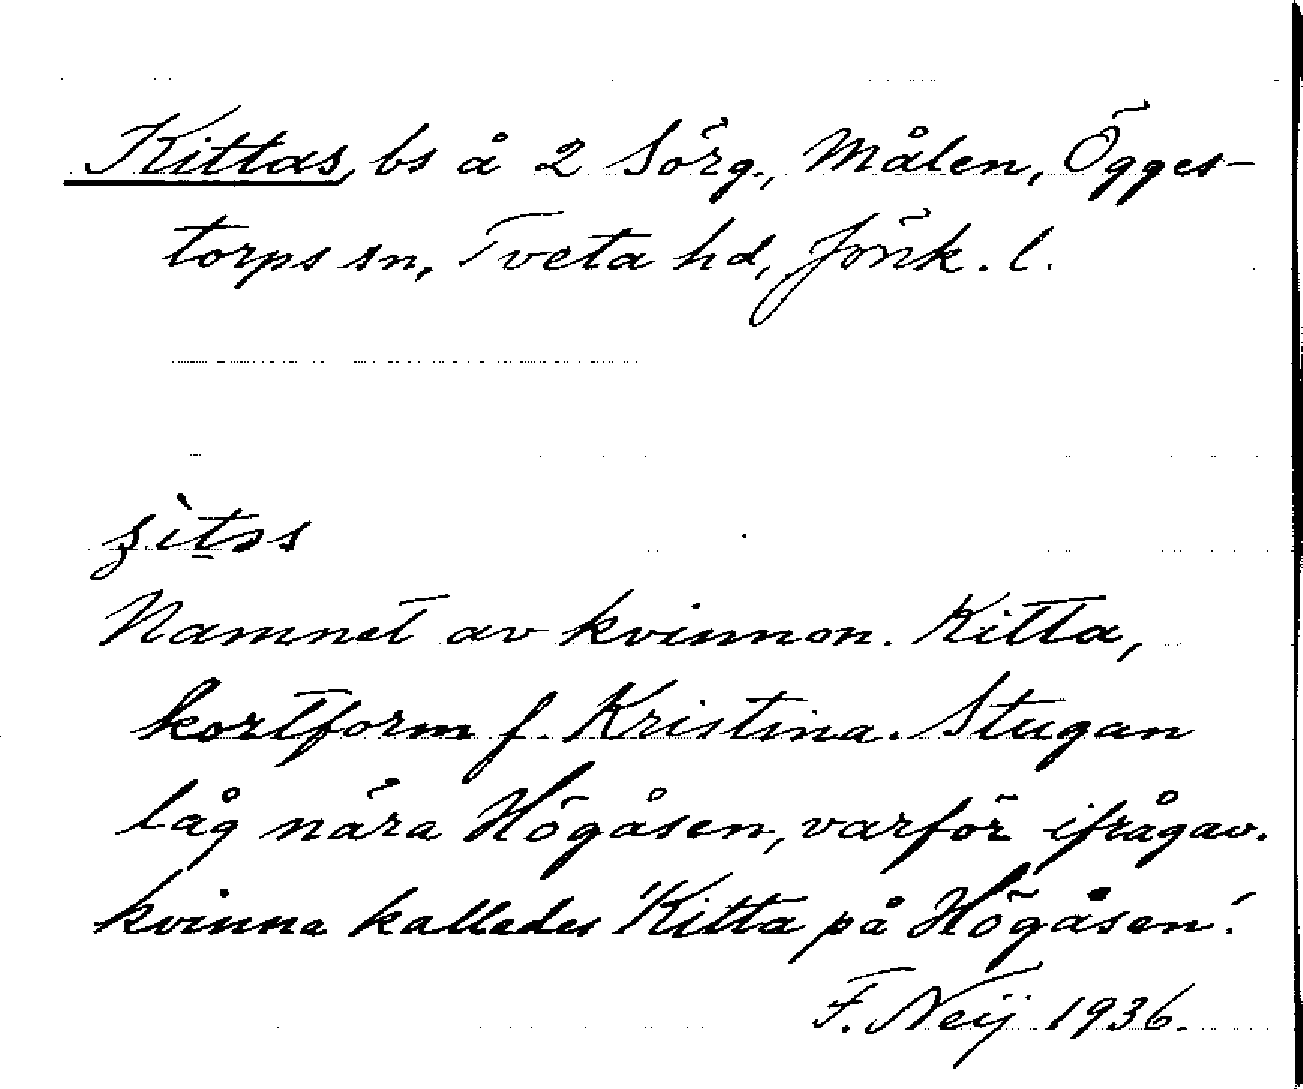 Kittas, bs å 2 Sörg., Målen, Ögges-
torps sn, Tveta hd, Jönk. l.
Namnet av kvinnon. Kitta,
kortform f. Kristina. Stugan
låg nära Högåsen, varför ifrågav.
kvinna kallades "Kitta på Högåsen".
F. Neij 1936.